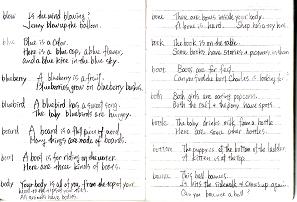 blow Is the wind blowing?
Jenny blew up the balloon.
blue Blue is a color.
Here is a blue cap, a blue flower,
and a blue kite in the blue sky.
blueberry A blueberry is a fruit.
Blueberries grow on blueberry bushes.
bluebird A bluebird has a sweet song.
The baby bluebirds are hungry.
board A board is a flat piece of wood.
Many things are made of boards.
boat A boat is for riding on the water.
Here are three kinds of boats.
body Your body is all of you, from the top of your
All animals have bodies.
bone There are bones inside your body.
A bone is hard.
book The book is on the table.
Some books have stories and pictures in them.
boot Boots are for feet.
Can you find the boot Charles is looking for?
both Both girls are eating popcorn.
Both the calf and the pony have spots.
bottle The baby drinks milk from a bottle.
Here are some other bottles.
bottom The puppy is at the bottom of the ladder.
A kitten is at the top.
bounce This ball bounces.
It hits the sidewalk and comes up again.
Can you bounce a ball?